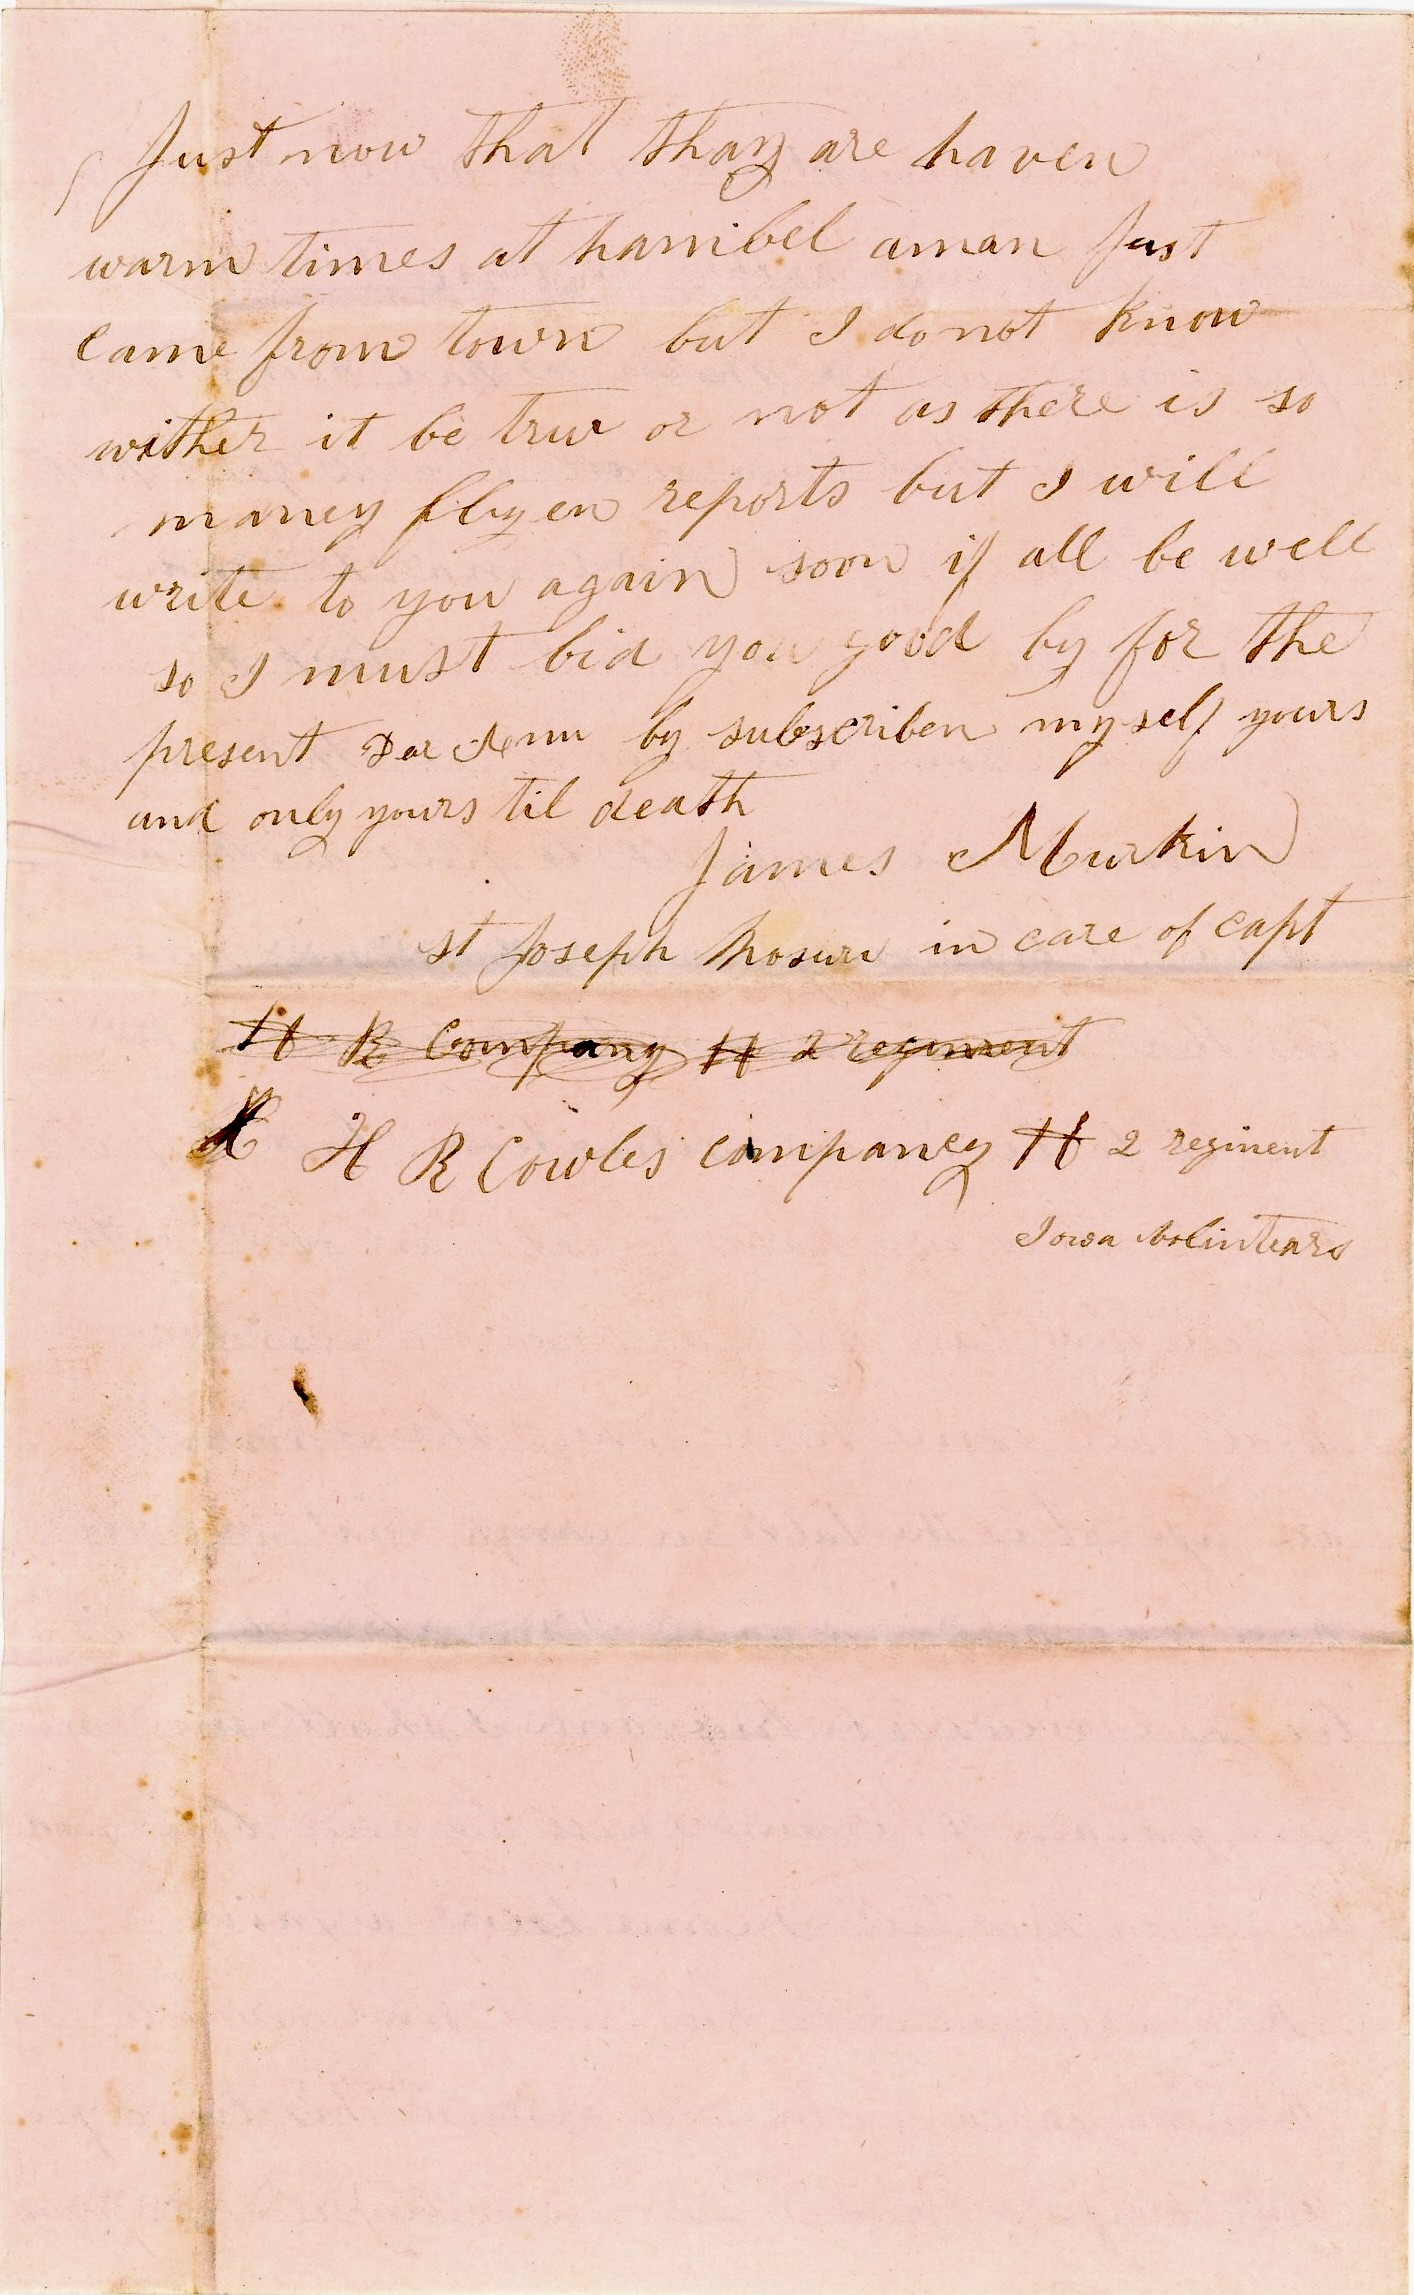 Just now that thay are haven
warm times at hannibel aman Just
came from town but I do not know
wither it be true or not as there is so
maney flyen reports but I will
write to you again soon if all be well
so I must bid you good by for the
present Dear Ann by subscriben my self yours
and only yours til death
James Murkin
st Joseph Mosuri in care of capt
H R Company H 2 regiment
H R Cowles compancy H 2 reginent
Iowa Volintears